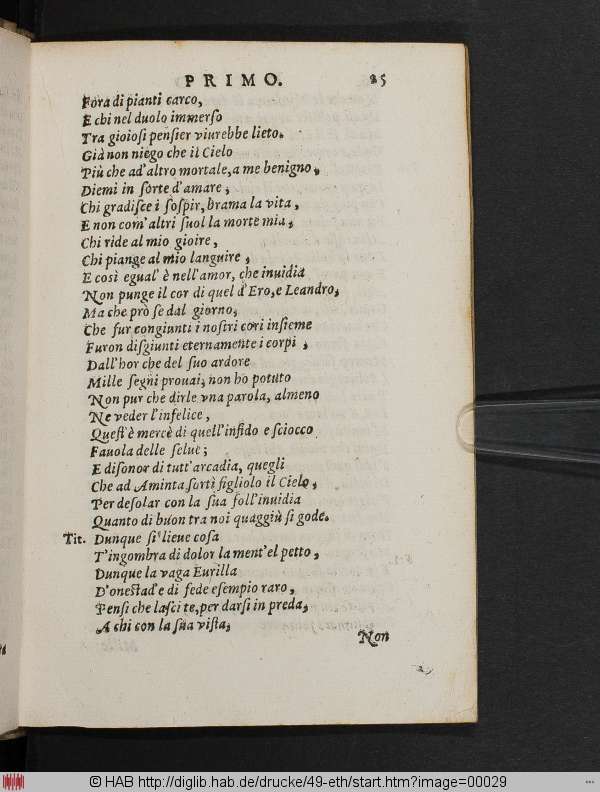 PRIMO. 25
Fora di pianti carco,
E chi nel duolo immerſo
Tra gioioſi penſier viurebbe lieto.
Già non niego che il Cielo
Più che ad'altro mortale, a me benigno,
Diemi in ſorte d'amare,
Chi gradiſce i ſoſpir, brama la vita,
E non com'altri ſuol la morte mia,
Chi ride al mio gioire,
Chi piange al mio languire,
E così egual' è nell'amor, che inuidia
Non punge il cor di quel d'Ero, e Leandro,
Ma che prò ſe dal giorno,
Che fur congiunti i noſtri cori inſieme
Furon diſgiunti eternamente i corpi,
Dall'hor che del ſuo ardore
Mille ſegni prouai, non ho potuto
Non pur che dirle vna parola, almeno
Ne veder l'infelice,
Queſt'è mercè di quell'infido e ſciocco
Fauola delle ſelue;
E diſonor di tutt'arcadia, quegli
Che ad Aminta ſortì figliolo il Cielo,
Per deſolar con la ſua foll'inuidia
Quanto di buon tra noi quaggiù ſi gode.
Tit. Dunque sì lieue coſa
T'ingombra di dolor la ment'el petto,
Dunque la vaga Eurilla
D'oneſtad'e di fede eſempio raro,
Penſi che laſci te, per darſi in preda,
A chi con la ſua viſta,
Non
© HAB http://diglib.hab.de/drucke/49-eth/start.htm?image=00029